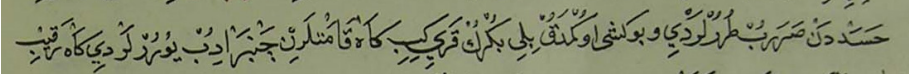 حسددن ضرر بُطُررلردي و بو كشى اولمدقْ بيلى بكرك قرىِ كيبِ كاه قامتلرين چنبر ايدُبْ يوررلردي كاه رقيب